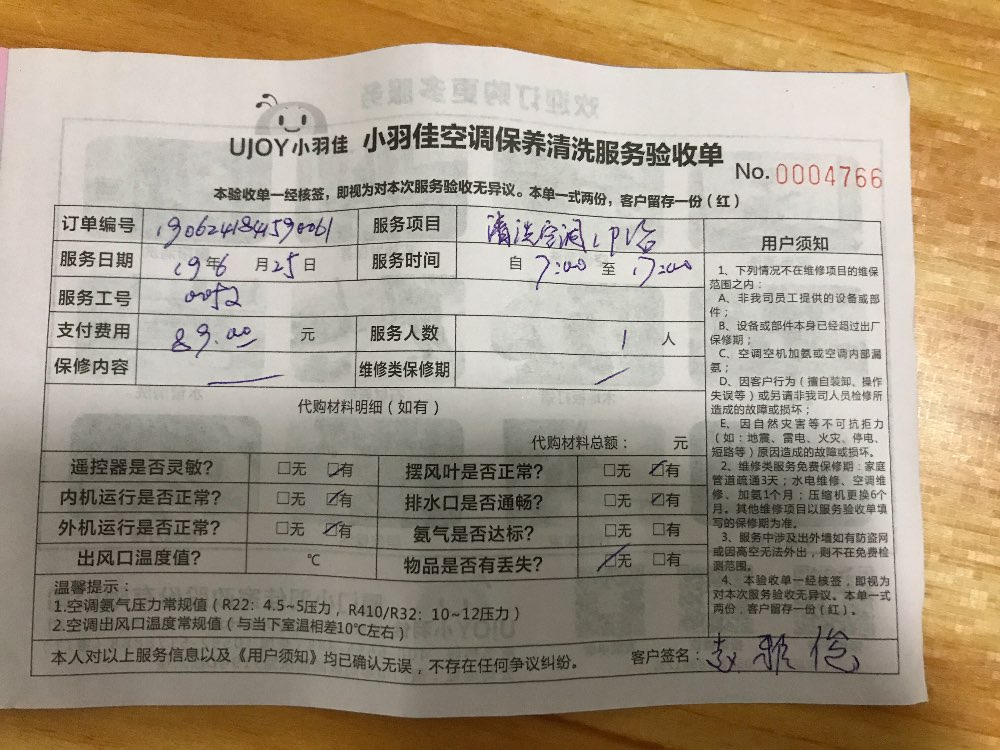 UJOY小羽佳 小羽佳空调保养清洗服务验收单
No. 0004766
本验收单一经核签，即视为对本次服务验收无异议。本单一式两份，客户留存一份（红）
订单编号 190624184590061 服务项目 清洗空调
服务日期 19年6月25日 服务时间 自 7:00 至 17:00
服务工号 0052
支付费用 89.00 元 服务人数 1 人
保修内容 维修类保修期
代购材料明细（如有）
代购材料总额： 元
遥控器是否灵敏? □无 ☑有 摆风叶是否正常? □无 ☑有
内机运行是否正常? □无 ☑有 排水口是否通畅? □无 ☑有
外机运行是否正常? □无 ☑有 氨气是否达标? □无 □有
出风口温度值? ℃ 物品是否有丢失? ☑无 □有
温馨提示：
1.空调氨气压力常规值（R22：4.5~5压力，R410/R32：10~12压力）
2.空调出风口温度常规值（与当下室温相差10℃左右）
本人对以上服务信息以及《用户须知》均已确认无误，不存在任何争议纠纷。 客户签名：赵雅俊
用户须知
1、下列情况不在维修项目的维保
范围之内：
A、非我司员工提供的设备或部
件；
B、设备或部件本身已经超过出厂
保修期；
C、空调空机加氨或空调内部漏
氨；
D、因客户行为（擅自装卸、操作
失误等）或另请非我司人员检修所
造成的故障或损坏；
E、因自然灾害等不可抗拒力
（如：地震、雷电、火灾、停电、
短路等）原因造成的故障或损坏。
2、维修类服务免费保修期：家庭
管道疏通3天；水电维修、空调维
修、加氨1个月；压缩机更换6个
月。其他维修项目以服务验收单填
写的保修期为准。
3、服务中涉及出外墙如有防盗网
或因高空无法外出，则不在免费检
测范围。
4、本验收单一经核签，即视为
对本次服务验收无异议。本单一式
两份，客户留存一份（红）。